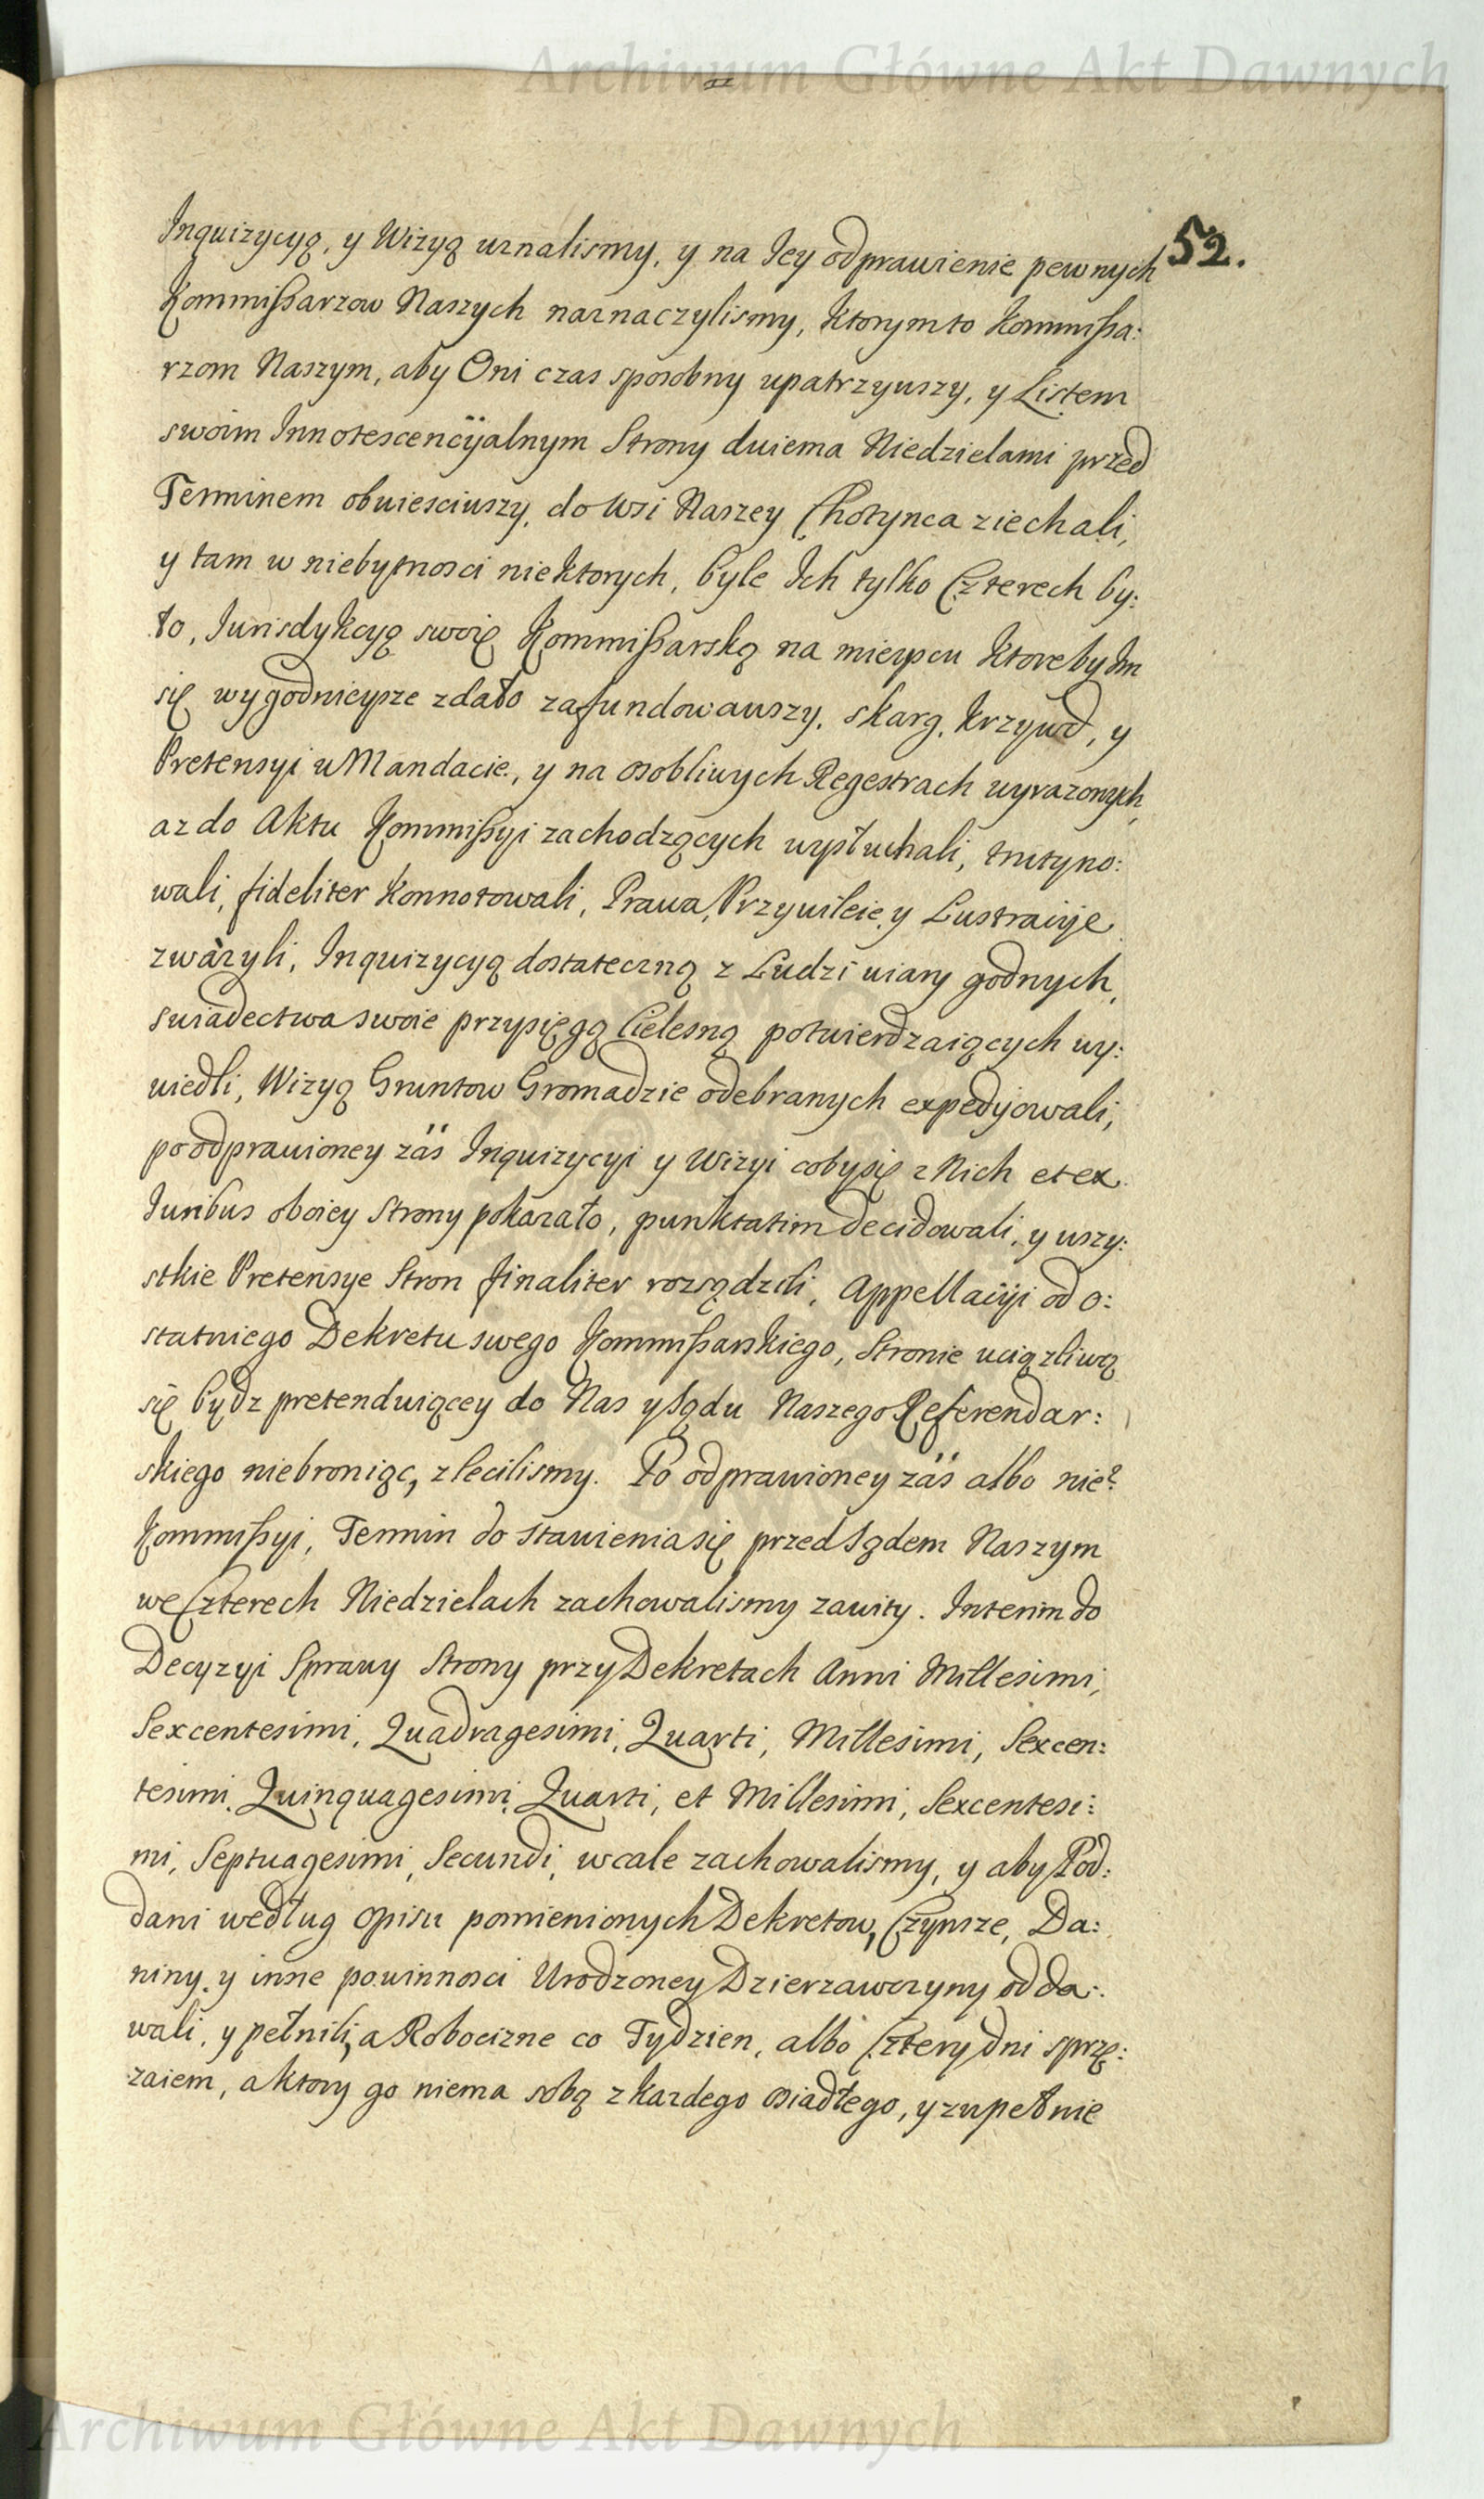 Archiwum Główne Akt Dawnych
52.
Inquizycyą, y Wizyą uznalismy, y na Jey odprawienie pewnych
Kommißarzow Naszych naznaczylismy, Ktorymto Kommißa:
rzom Naszym, aby Oni czas sposobny upatrzywszy, y Listem
swoim Innotescencÿalnym Strony dwiema Niedzielami przed
Terminem obwiesciwszy, do Wsi Naszey Chotynca ziechali,
y tam w niebytnosci niektorych, byle Ich tylko Czterech by:
ło, Jurisdykcyą swoię Kommißarską na mieyscu Ktoreby Im
się wygodnieysze zdało zafundowawszy, skarg, krzywd, y
Pretensyi w Mandacie, y na osobliwych Regestrach wyrazonych,
az do Aktu Kommißyi zachodzących wysłuchali, trutyno:
wali, fideliter konnotowali, Prawa, Przywileie, y Lustracÿe
zwazyli, Inquizycyą dostateczną z Ludzi wiary godnych,
swiadectwa swoie przysięgą Cielesną potwierdzaiących wy:
wiedli, Wizyą Gruntow Gromadzie odebranych expedyowali,
po odprawioney zaś Inquizycyi y Wizyi coby się z Nich et ex
Juribus oboiey Strony pokazało, punktatim decidowali, y wszy:
stkie Pretensye Stron finaliter rozsądzili, Appellacÿi od o:
statniego Dekretu swego Kommißarskiego, Stronie uciązliwą
się bydz pretenduiącey do Nas y Sądu Naszego Referendar:
skiego niebroniąc, zlecilismy. Po odprawioney zaś albo nie?
Kommißyi, Termin do stawienia się przed Sądem Naszym
we Czterech Niedzielach zachowalismy zawity. Interim do
Decyzyi Sprawy Strony przy Dekretach Anni Millesimi,
Sexcentesimi, Quadragesimi, Quarti, Millesimi, Sexcen:
tesimi, Quinquagesimi, Quarti, et Millesimi, Sexcentesi:
mi, Septuagesimi, Secundi, wcale zachowalismy, y aby Pod:
dani według opisu pomienionych Dekretow, Czynsze, Da:
niny, y inne powinnosci Urodzoney Dzierzawczyny odda:
wali, y pełnili, a Robocizne co Tydzien, albo Cztery dni sprzę:
zaiem, a ktory go niema sobą z kazdego osiadłego, y zupełnie
Archiwum Główne Akt Dawnych